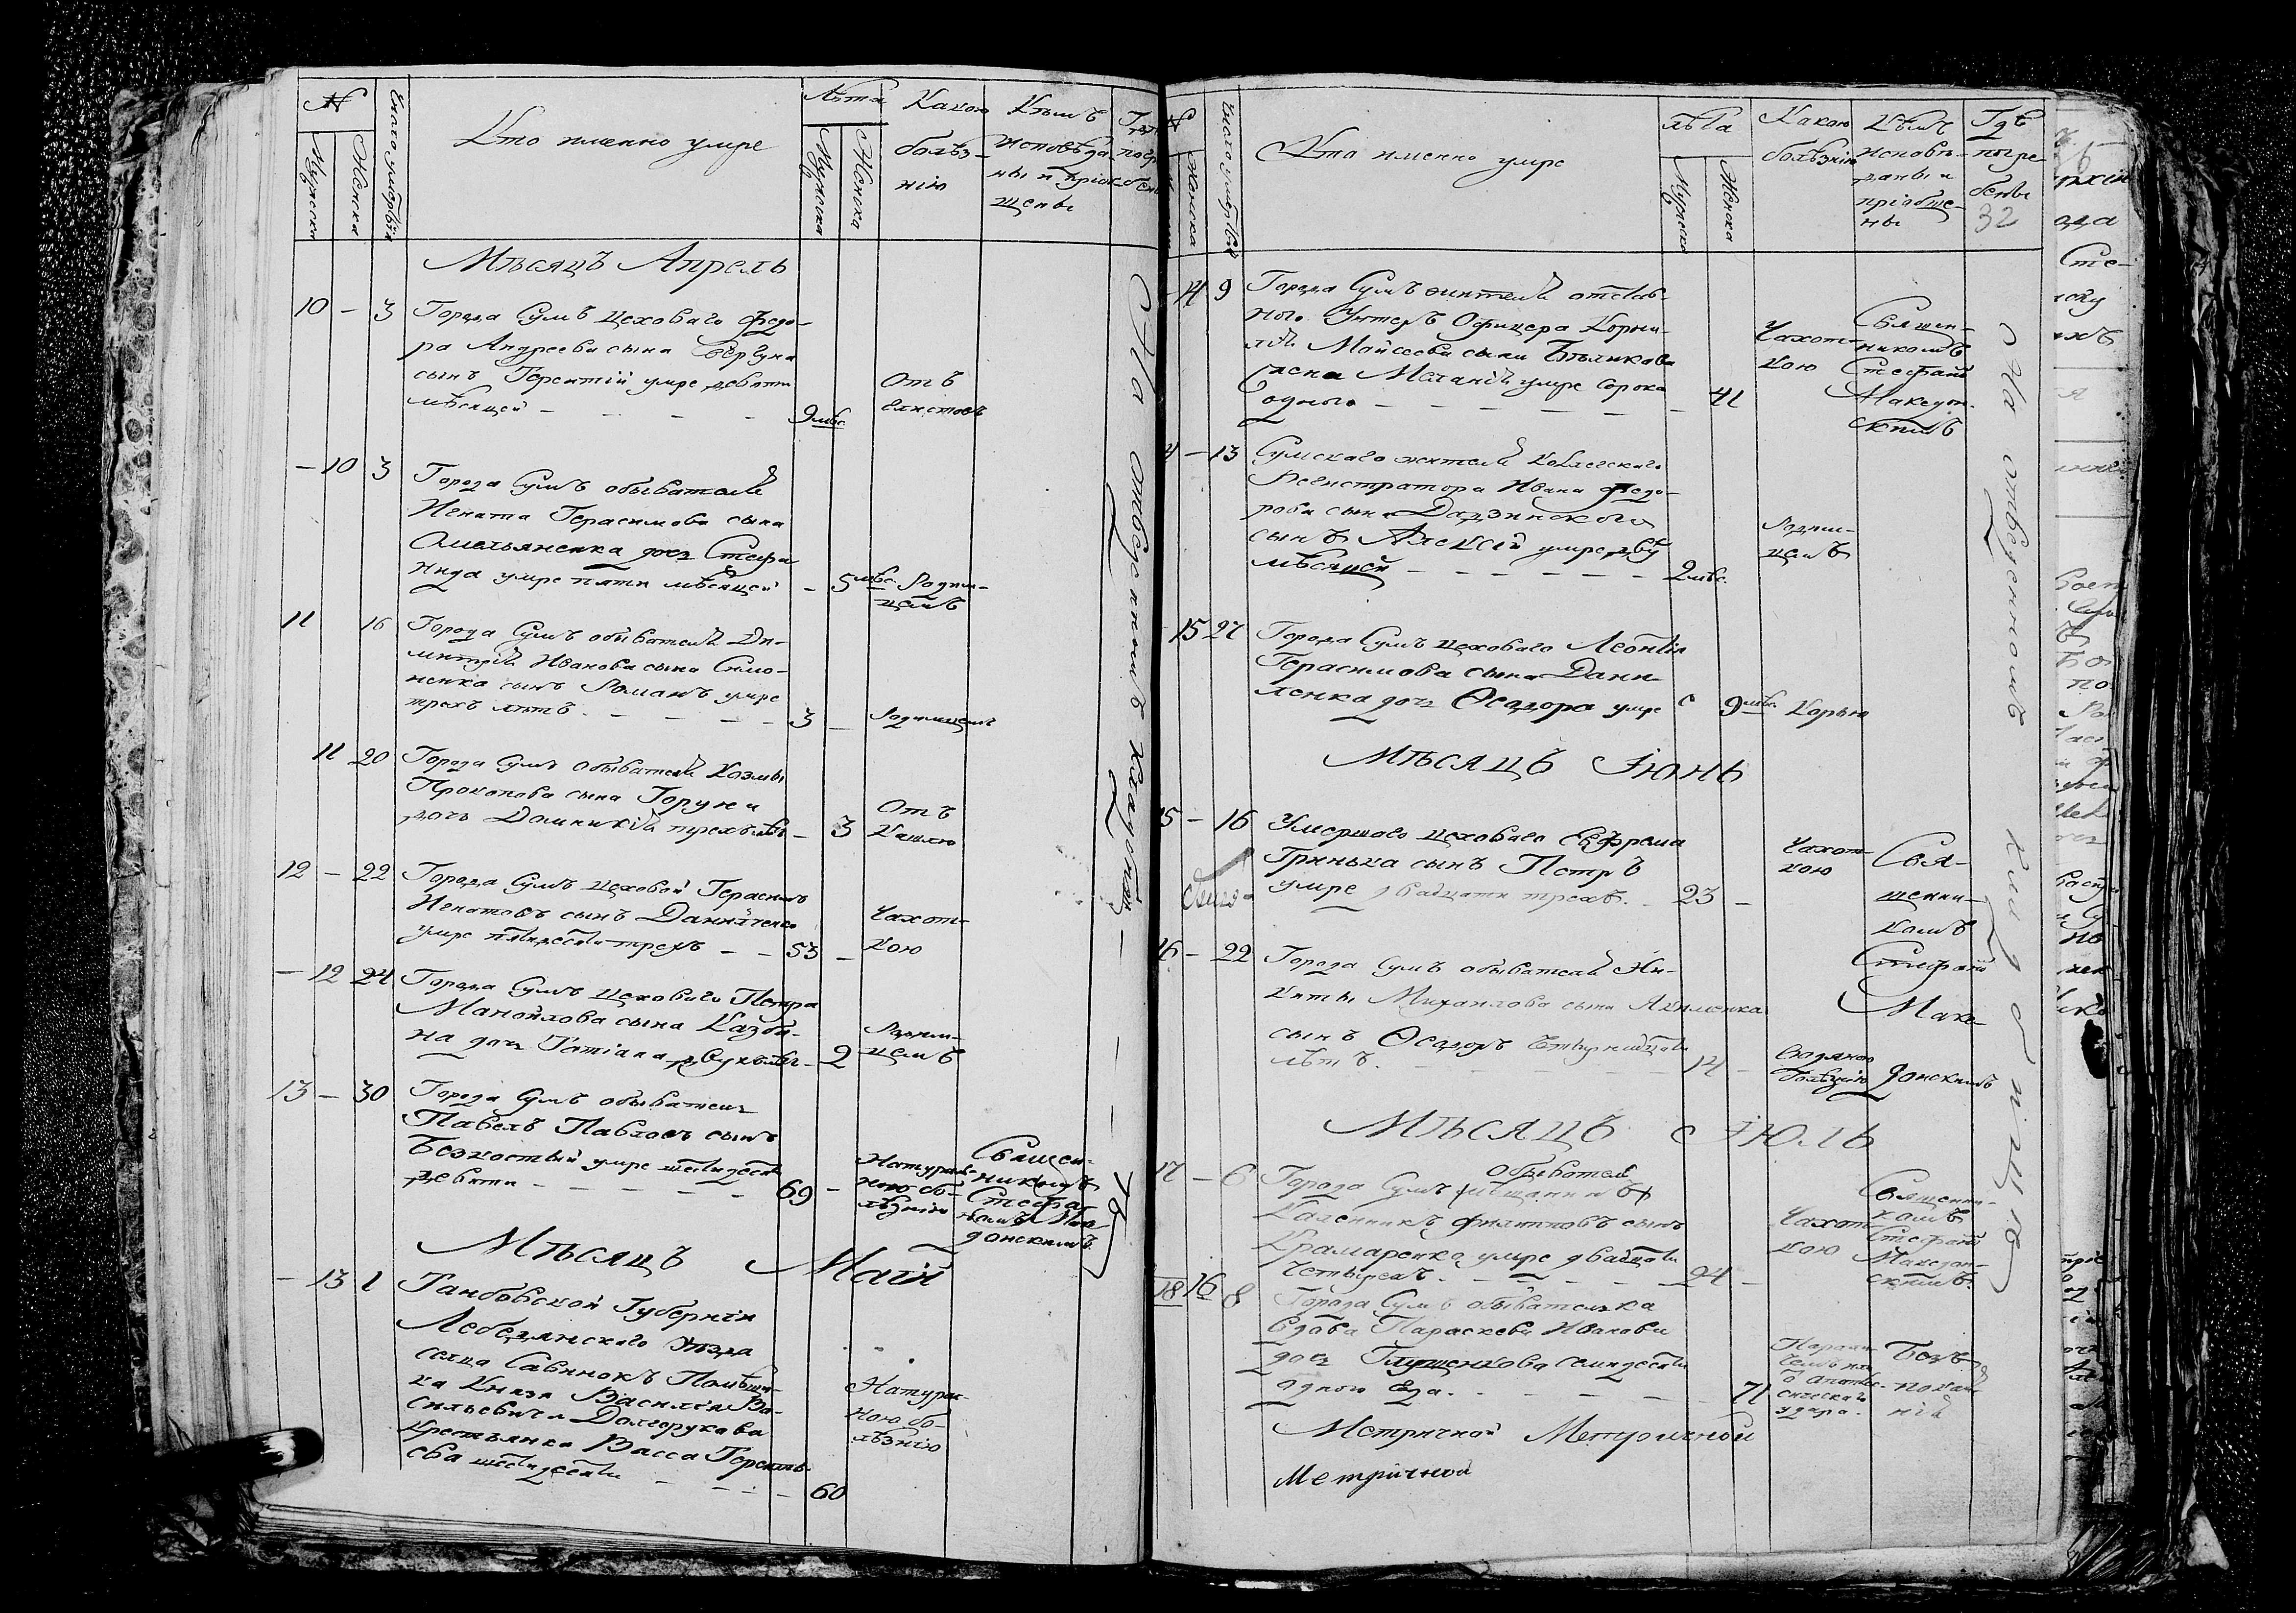 №
Мужеска
Женска
Число умертвія
Кто именно умре
Лѣта
Мужеска
Женска
Какою
болѣз-
нію
Кѣмъ
исповѣда-
ны и пріоб-
щены
Мѣсяцъ Апрель
10 - 3 Города Сумъ цеховаго Федо-
ра Андреева сына
сынъ Терентій умре девяти
мѣсяцей - - - - 9 мѣс.
Отъ
глистовъ
- 10 3 Города Сумъ обывателя
Игната Герасимова сына
Омельяненка дочь Стефа
нида умре пяти мѣсяцей - 5 мѣс. Родим-
цемъ
11 16 Города Сумъ обывателя Ди-
митрія Иванова сына Симо-
ненка сынъ Романъ умре
трехъ лѣтъ - - - - 3 - Родимцемъ
11 20 Города Сумъ обывателя Козмы
Прокопова сына
дочь Домникія трехъ лѣтъ - 3
Отъ
Кашлю
12 - 22 Города Сумъ цеховой Герасимъ
Игнатовъ сынъ Даниленко
умре пятидесяти трехъ - - 53 -
Чахот-
кою
- 12 24 Города Сумъ цеховаго Петра
Манойлова сына Казба-
на дочь Татіана двухъ лѣтъ - 2
Родим-
цемъ
13 - 30 Города Сумъ обыватель
Павелъ Павловъ сынъ
Безкостый умре шестидесяти
девяти - - - - - 69 -
Натураль-
ною бо-
лѣзнію
Священ-
никомъ
Стефа-
номъ Маке
донскимъ
Мѣсяцъ Май
- 13 1 Танбовской Губерніи
Лебедянскаго Уѣзда
сельца Савинокъ Помѣщи-
ка Князя Василія Ва-
сильевича Долгорукова
Крестьянка Васса
ва шестидесяти - - - - 60
Натураль-
ною бо-
лѣзнію
На отведенномъ кладбищѣ
№
Женска
Число умертвія
Кто именно умре
Лѣта
Мужеска
Женска
Какою
болѣзнію
Кѣмъ
исповѣ-
даны и
пріобще-
ны
Гдѣ
погре-
бены
32
- 14 9 Города Сумъ жителя отстав-
ного Унтеръ Офицера Корни-
лія Мойсеева сына Бѣликова
жена Меланія умре сорока
одного - - - - - - - 41
Чахот-
кою
Священ-
никомъ
Стефано
Македон-
скимъ
- 13 Сумскаго жителя Колежскаго
Регистратора Ивана Федо-
рова сына
сынъ Алексій умре двѣ
мѣсяцей - - - - - - 2 мѣс.
Родим-
цемъ
15 27 Города Сумъ цеховаго Леонтія
Герасимова сына Дани-
ленка дочь Ѳеодора умре 9 мѣс. Корью
Мѣсяцъ Іюнь
15 - 16 Умершаго цеховаго Ефрема
Гринька сынъ Петръ
умре двадцати трехъ. - 23 -
Чахот-
кою
Свя-
щенни-
комъ
Стефано
Маке-
донскимъ
16 - 22 Города Сумъ обывателя Ни-
киты Михайлова сына Якименка
сынъ Ѳеодоръ четырнадцати
лѣтъ. - - - 14 -
Водяною
болѣзнію
Мѣсяцъ Іюль
17 - 6 обыватель
Города Сумъ мѣщанинъ
Каленникъ Филиповъ сынъ
Крамаренко умре двадцати
четырехъ. - - - - - 24 -
Чахот-
кою
Священни-
комъ
Стефано
Македон-
скимъ.
18 16 8 Города Сумъ обывателька
вдова Параскева Иванова
дочь Глущенкова семидесяти
одного года. - - - - 71
Парали-
чемъ или
о апоплек-
сическаго
удара.
Безъ
покая
нія
На отведенномъ кладбищѣ
Метричной Метричной
Метричной